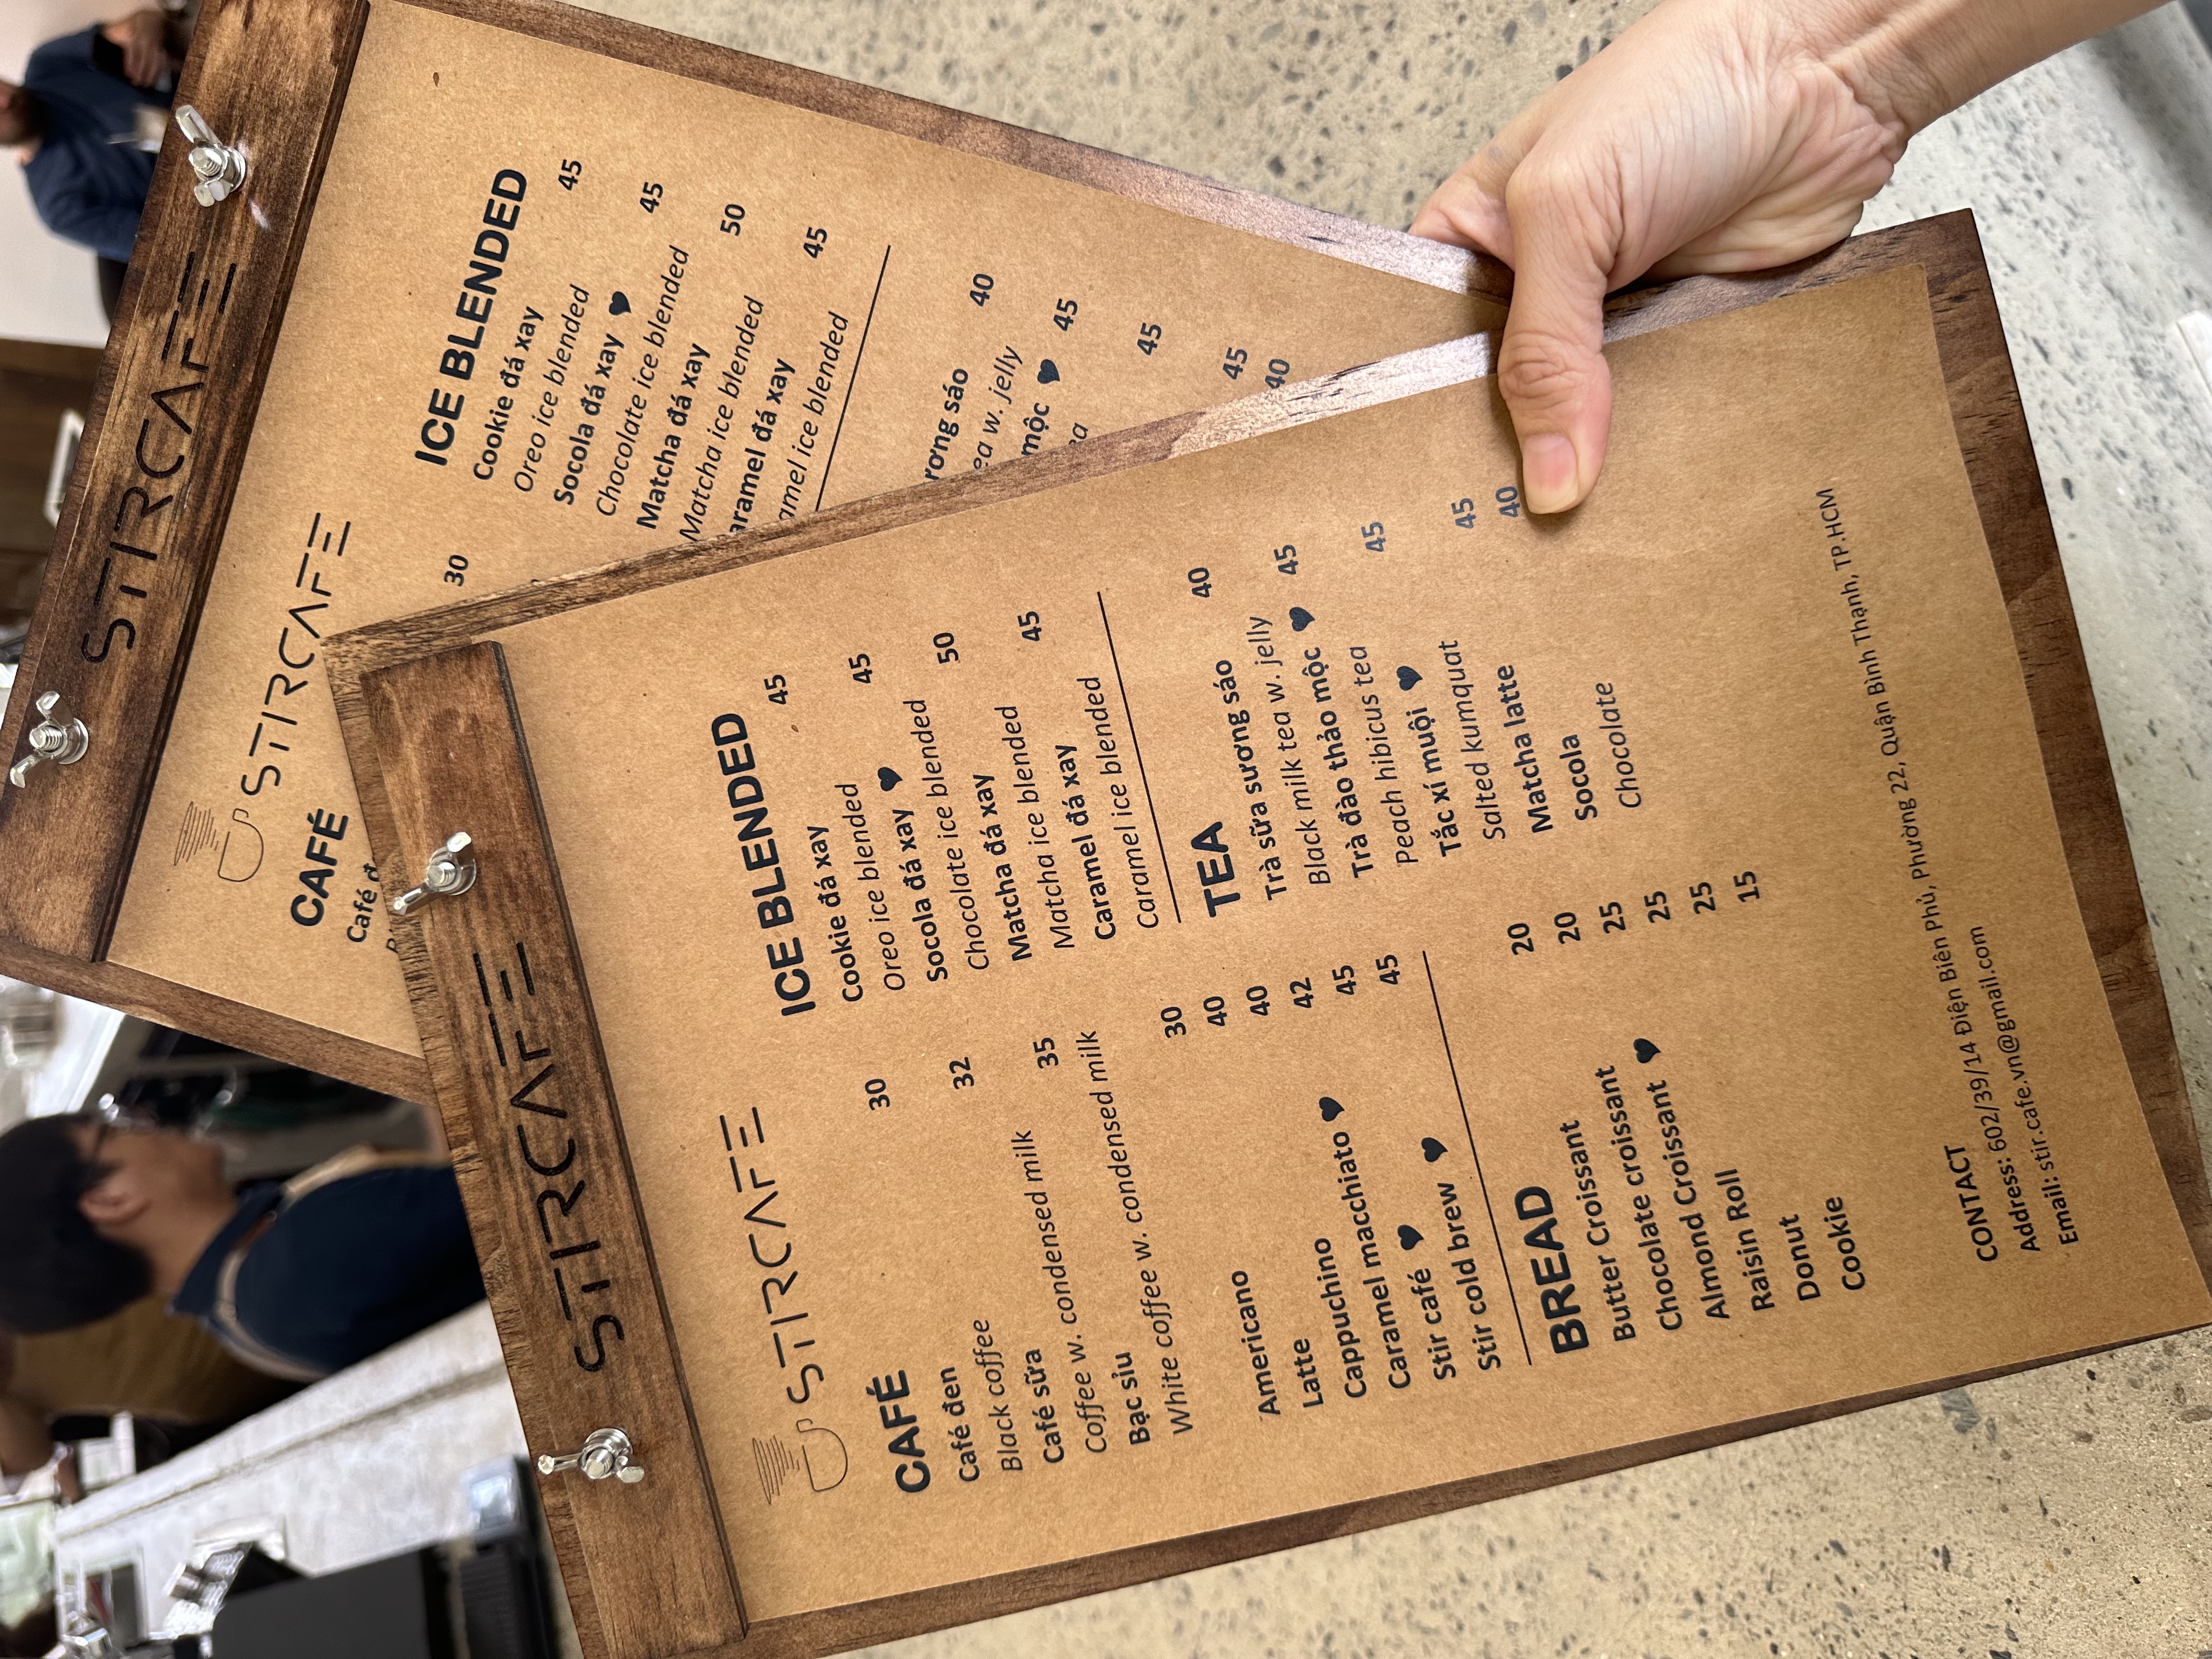 STIRCAFE
STIRCAFE
CAFÉ
Café đen 30
Black coffee
Café sữa 32
Coffee w. condensed milk
Bạc sỉu 35
White coffee w. condensed milk
Americano 30
Latte 40
Cappuchino 40
Caramel macchiato ♥ 42
Stir café ♥ 45
Stir cold brew ♥ 45
BREAD
Butter Croissant 20
Chocolate croissant 20
Almond Croissant ♥ 25
Raisin Roll 25
Donut 25
Cookie 15
ICE BLENDED
Cookie đá xay 45
Oreo ice blended
Socola đá xay ♥ 45
Chocolate ice blended
Matcha đá xay 50
Matcha ice blended
Caramel đá xay 45
Caramel ice blended
TEA
Trà sữa sương sáo 40
Black milk tea w. jelly
Trà đào thảo mộc ♥ 45
Peach hibicus tea
Tắc xí muội ♥ 45
Salted kumquat
Matcha latte 45
Socola 40
Chocolate
CONTACT
Address: 602/39/14 Điện Biên Phủ, Phường 22, Quận Bình Thạnh, TP.HCM
Email: stir.cafe.vn@gmail.com
STIRCAFE
STIRCAFE
CAFÉ
Café 30
ICE BLENDED
Cookie đá xay 45
Oreo ice blended
Socola đá xay ♥ 45
Chocolate ice blended
Matcha đá xay 50
Matcha ice blended
aramel đá xay 45
amel ice blended
ương sáo 40
ea w. jelly
mộc ♥ 45
ea
45
45
40